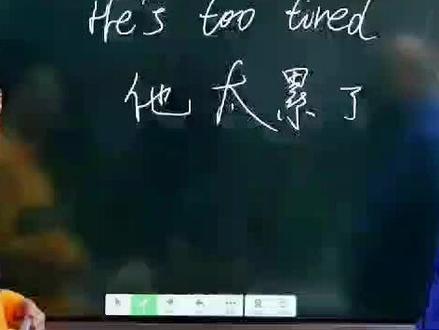 He's too tired
他太累了